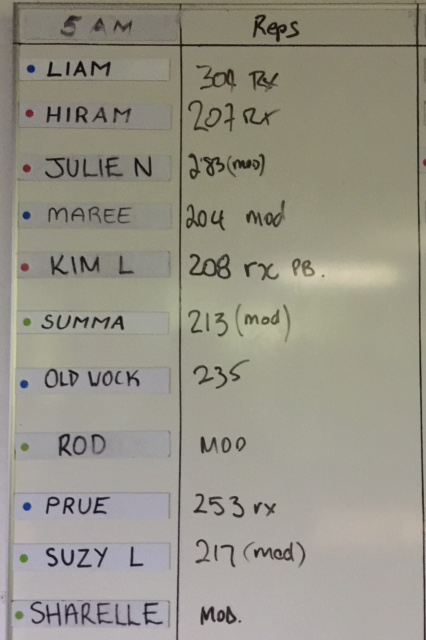 5 AM Reps
LIAM 304 Rx
HIRAM 207 Rx
JULIE N 283 (mod)
MAREE 204 mod
KIM L 208 rx PB.
SUMMA 213 (mod)
OLD 235
ROD MOD
PRUE 253 rx
SUZY L 217 (mod)
SHARELLE MOD.